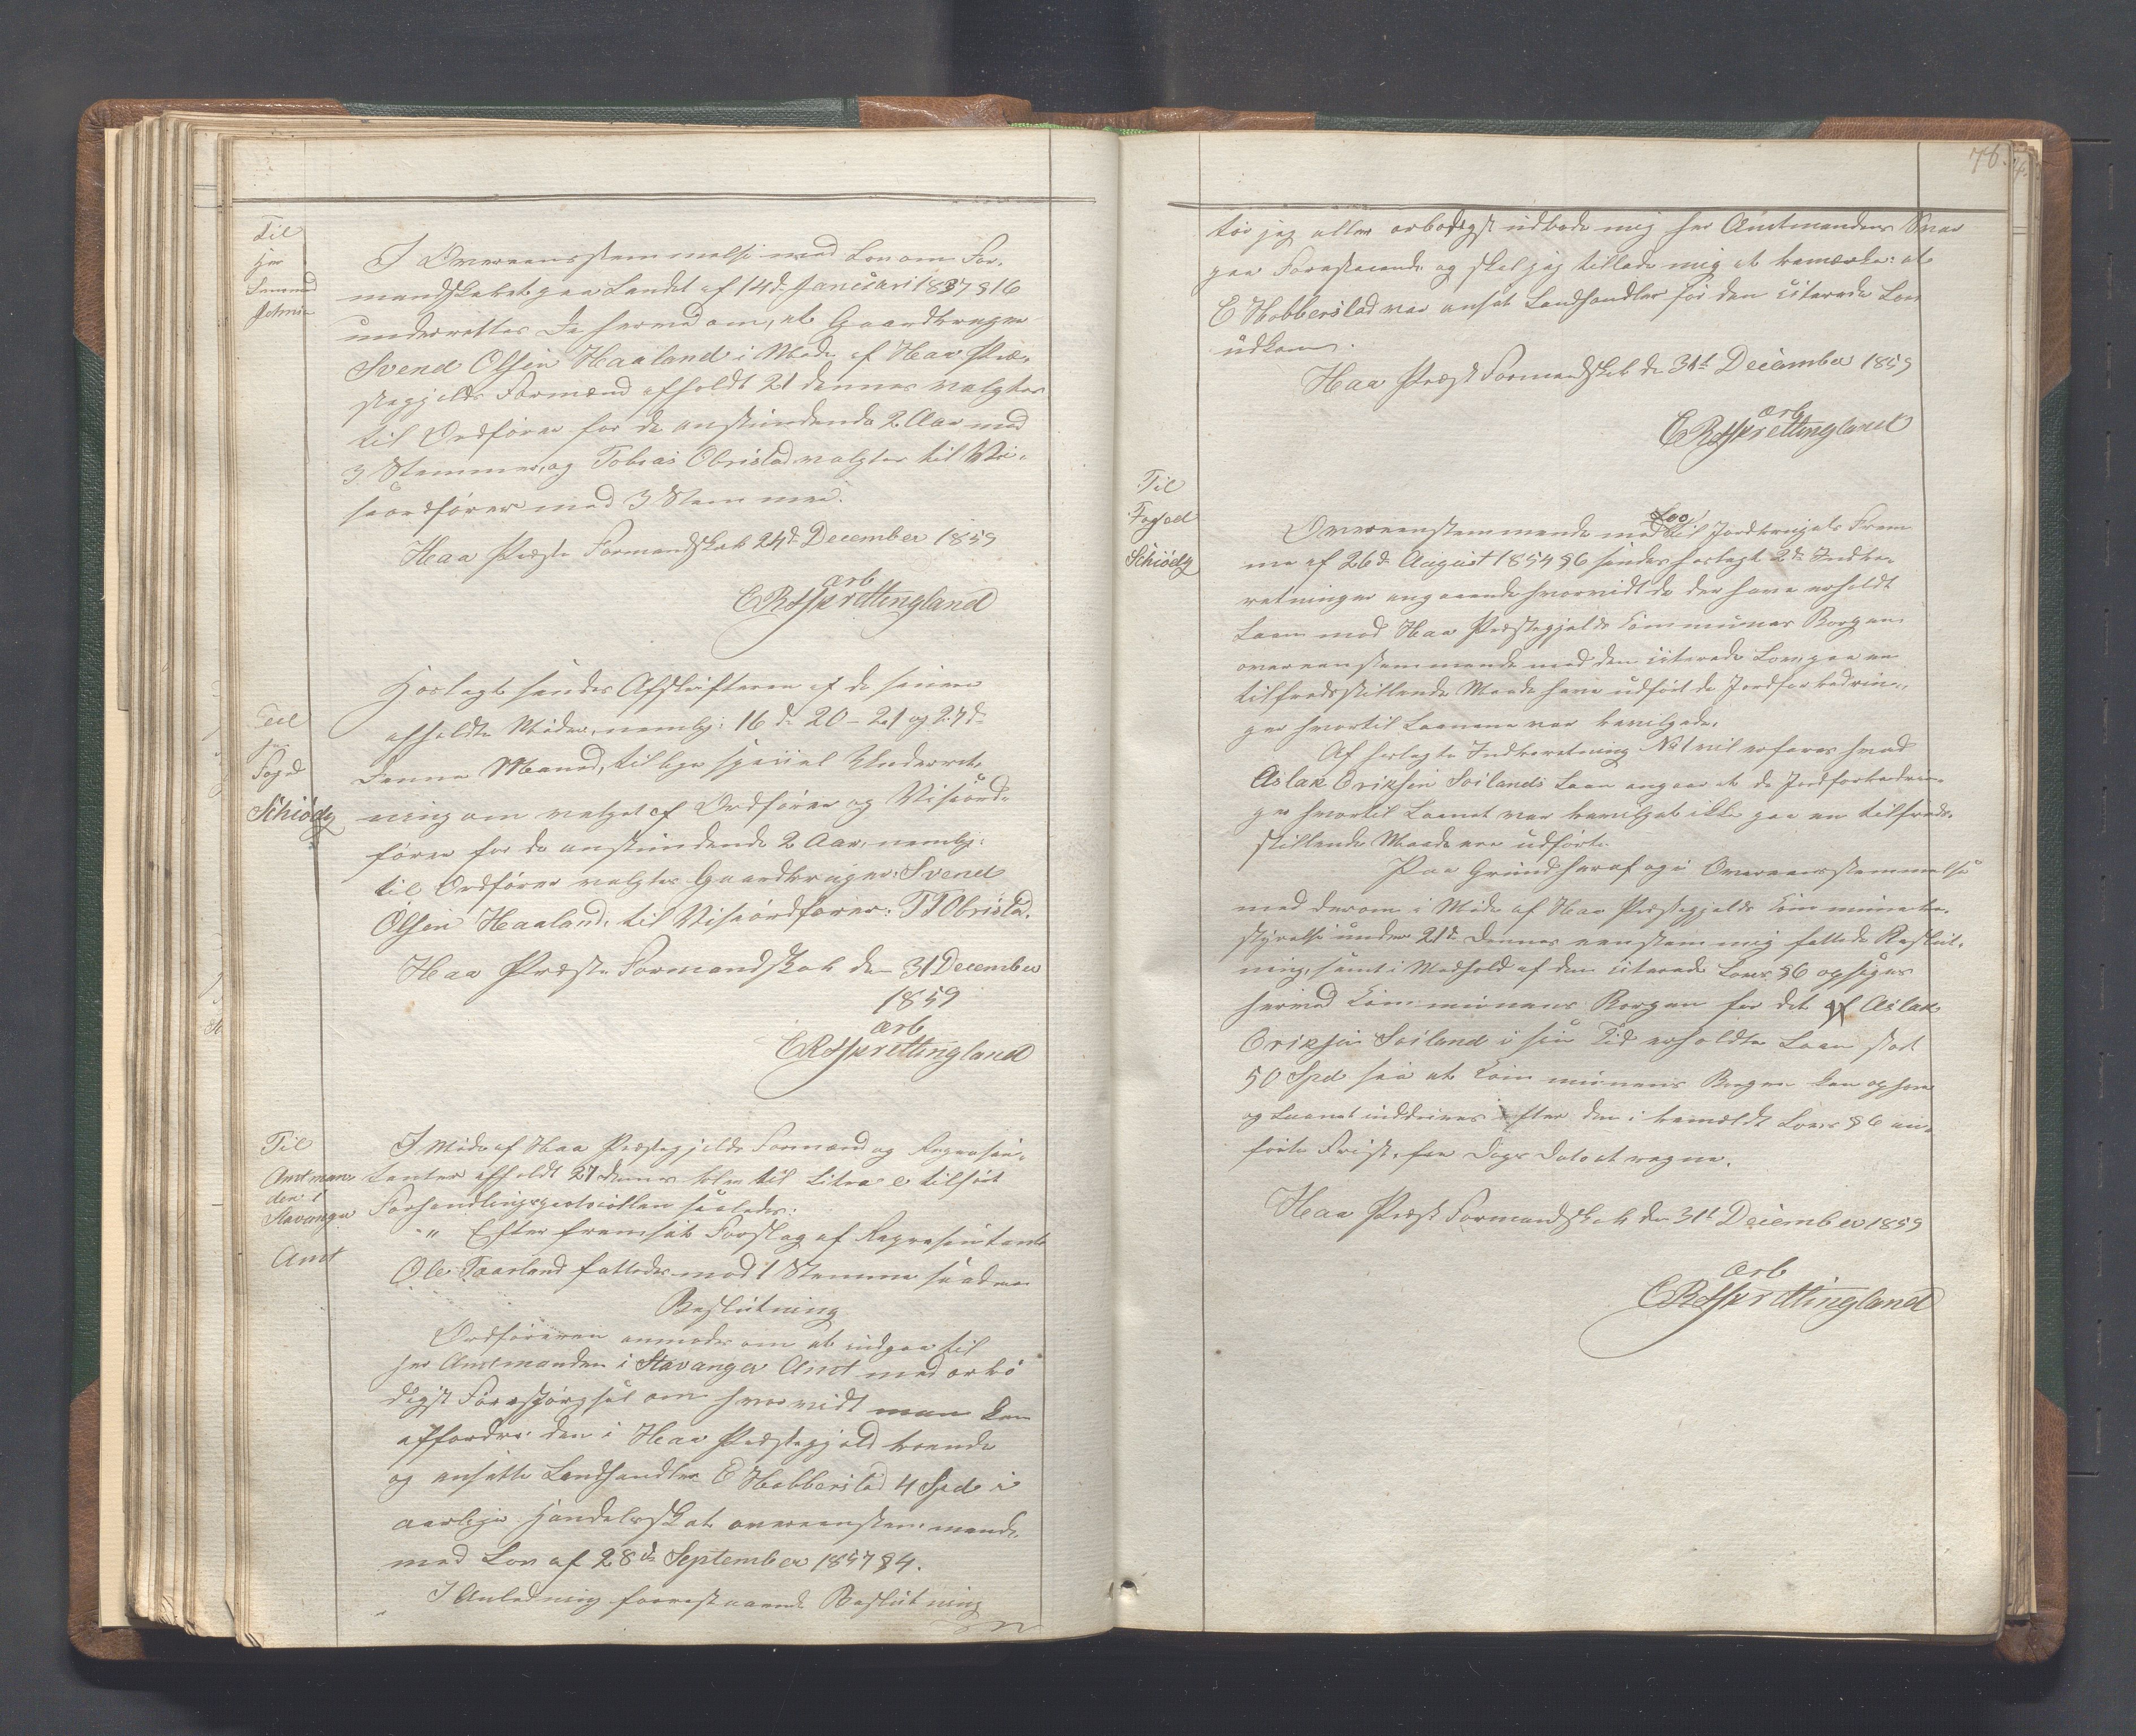 Til
Herr
J Overeensstemmelse med Lov om For-
mandskabet paa Landet af 14de Januari 1837 § 16
underrettes De hermed om, at Gaardbruger
Svend Olsen Haaland i Møde af Haa Præ-
stegjelds Formænd afholdt 21 dennes valgtes
til Ordfører for de anstundende 2 Aar med
3 Stemmer, og Tobias Obrestad valgtes til Vi-
seordfører med 3 Stemmer.
Haa Præste Formandskab 24de December 1859
ærb
E R Hprettingland
Til
Herr
Foged
Schiødtz
Hoslagt sendes Afskrifterne af de senere
afholdte Møder, nemlig: 16de 20 - 21 og 27de
denne Maaned, tillige speciel Underret-
ning om valget af Ordfører og Viseord-
fører for de anstundende 2 Aar, nemlig:
til Ordfører valgtes Gaardbruger: Svend
Olsen Haaland, til Viseordfører: T T Obrestad.
Haa Præste Formandskab den 31 December
1859
ærb
E R Hprettingland
Til
Amtman
den i
Stavanger
Amt
J Møde af Haa Præstegjelds Formænd og Repræsen-
tanter afholdt 27 dennes blev til Litra e tilført
Forhandlingsprotocollen saaledes:
" Efter fremsat Forslag af Repræsentant
Ole Taarland fattedes mod 1 Stemme saadan
Beslutning
Ordføreren anmodes om at indgaa til
Herr Amtmanden i Stavanger Amt med ærbø
digst Forespørgsel om hvorvidt man kan
affordre den i Haa Præstegjeld boende
og ansatte Landhandler E Hobberstad 4 Spd i
aarlige Handelsskat overeenstemmende
med Lov af 28de September 1857 § 4.
J Anledning foranstaaende Beslutning
76.
tør jeg aller ærbødigst udbede mig Herr Amtmandens Svar
paa Foranstaaende og skal jeg tillade mig at bemærke: at
E Hobberstad var ansat Landhandler før den citerede Lov
udkom.
Haa Præst Formandskab de 31te December 1859
ærb
E R Hprettingland
Til
Foged
Schiødtz
Lov
Overeenstemmende med til Jordbrugets Frem
me af 26de August 1854 § 6 sendes hoslagt 2de Indbe-
retninger angaaende hvorvidt de der have erholdt
Laan mod Haa Præstegjelds Communes Borgen
overeenstemmende med den citerede Lov, paa en
tilfredsstillende Maade have udført de Jordforbedrin-
ger hvortil Laanene var bevilgede.
Af hoslagte Indberetning No 1 vil erfares hvad
Aslak Eriksen Soilands Laan angaar at de Jordforbedrin-
ger hvortil Laanet var bevilget ikke paa en tilfreds-
stillende Maade ere udført.
Paa Grund heraf og i Overeensstemmelse
med derom i Møde af Haa Præstegjelds Communebe-
styrelse under 21de dennes eenstemmig fattede Beslut-
ning, samt i Medhold af den citerede Lovs § 6 opsiges
hermed Communens Borgen for det af Aslak
Eriksen Soiland i sin Tid erholdte Laan stort
50 Spd saa at Communens Borgen kan ophøre
og Laanet inddrives efter den i bemældt Lovs § 6 an-
førte Frist, fra Dags Dato at regne.
Haa Præst Formandskab den 31te December 1859
ærb
E R Hprettingland